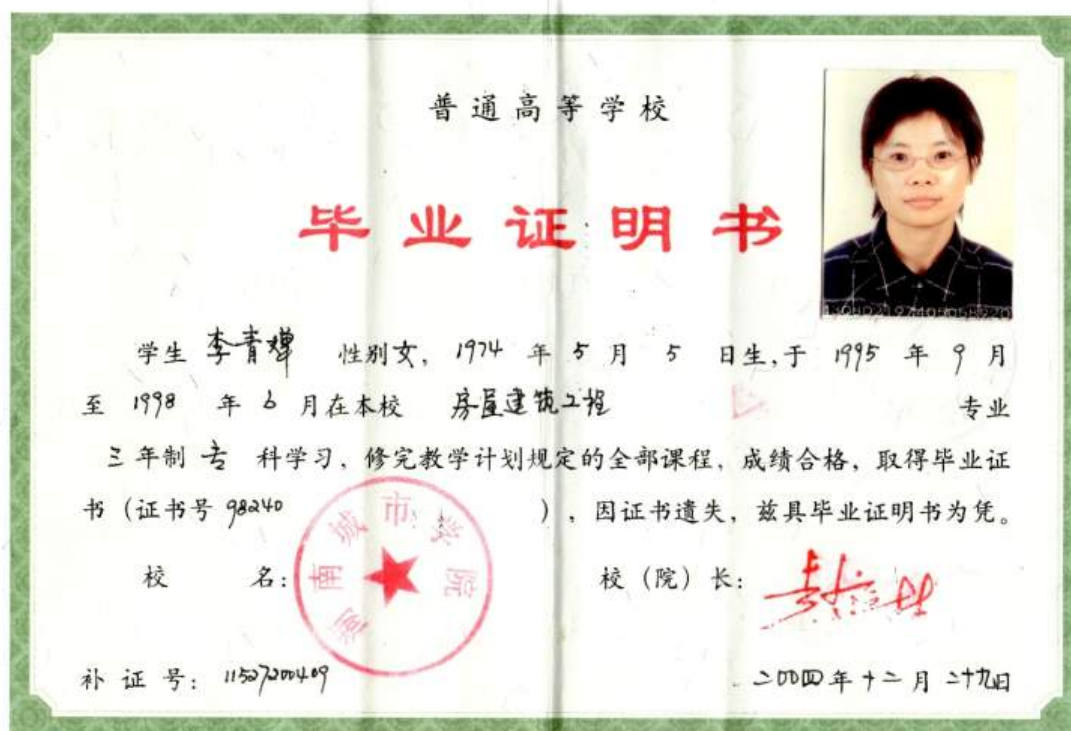 普通高等学校
毕业证明书
学生 李青婵 性别女，1974 年 5 月 5 日生，于 1995 年 9 月
至 1998 年 6 月在本校 房屋建筑工程 专业
三年制 专 科学习，修完教学计划规定的全部课程，成绩合格，取得毕业证
书（证书号 98240 ），因证书遗失，兹具毕业证明书为凭。
校 名： 校（院）长：
湖南城市学院
补 证 号： 11527200409 二000四年十二月二十九日